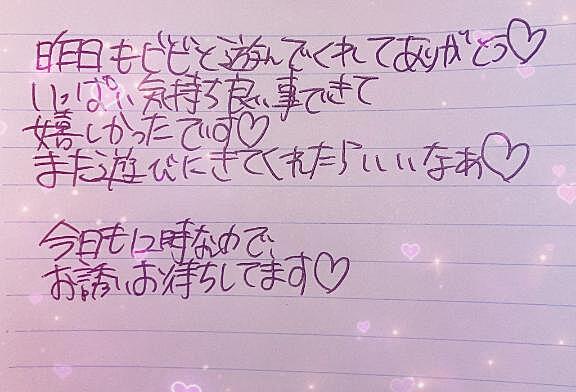 昨日もビビと遊んでくれてありがとう♡
いっぱい気持ち良い事できて
嬉しかったでいす♡
また遊びにきてくれたらいいなぁ♡
今日も12時なので、
お誘いお待ちしてます♡